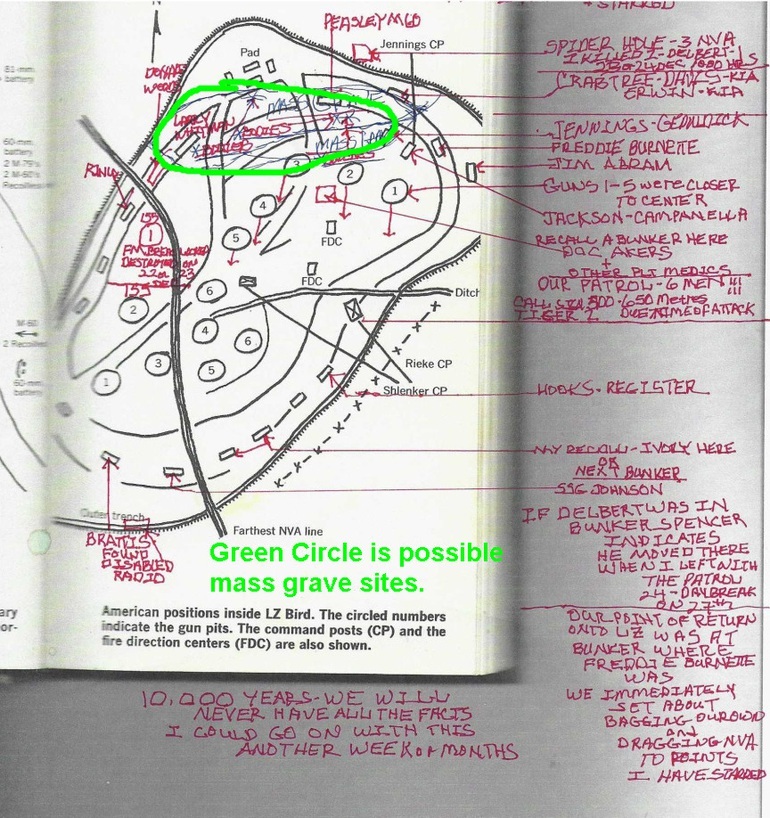 + STARRED
PEASLEY M60
SPIDER HOLE - 3 NVA
I KILLED 1 - DELBERT-1
CRABTREE-DAVIS-KIA
ERWIN-KIA
JENNINGS-
FREDDIE BURNETTE
JIM ABRAM
GUNS 1-5 WERE CLOSER
TO CENTER
JACKSON-CAMPANELLA
RECALL A BUNKER HERE
DOC AKERS
+
OTHER PLT MEDICS
OUR PATROL-6 MEN !!!
CALL SIGN 500-650 METRES
TIGER 2 DUE TIME OF ATTACK
HOOKS-REGISTER
MY RECALL-IVORY HERE
OR
NEXT BUNKER
SSG JOHNSON
IF DELBERT WAS IN
BUNKER SPENCER
INDICATES
HE MOVED THERE
WHEN I LEFT WITH
THE PATROL
24-DAYBREAK
ON 27TH
OUR POINT OF RETURN
ONTO LZ WAS AT
BUNKER WHERE
FREDDIE BURNETTE
WAS
WE IMMEDIATELY
SET ABOUT
BAGGING OUR OWN
and
DRAGGING NVA
TO POINTS
I HAVE STARRED
Pad
Jennings CP
81-mm
battery
60-mm
battery
2 M-79's
2 M-60's
Recoilless
WOODS
LARRY
WHITMAN
BODIES
BODIES
MASS
MASS
RING
155
1
DESTROYED ON
22 or 23
DEC
155
2
3
2
1
4
5
FDC
FDC
6
4
6
5
3
1
Ditch
M-60
2 Recoilless
60-mm
battery
Rieke CP
Shlenker CP
Outer trench
Farthest NVA line
BRATTIS
FOUND
DISABLED
RADIO
Green Circle is possible
mass grave sites.
American positions inside LZ Bird. The circled numbers
indicate the gun pits. The command posts (CP) and the
fire direction centers (FDC) are also shown.
10,000 YEARS-WE WILL
NEVER HAVE ALL THE FACTS
I COULD GO ON WITH THIS
ANOTHER WEEK or MONTHS